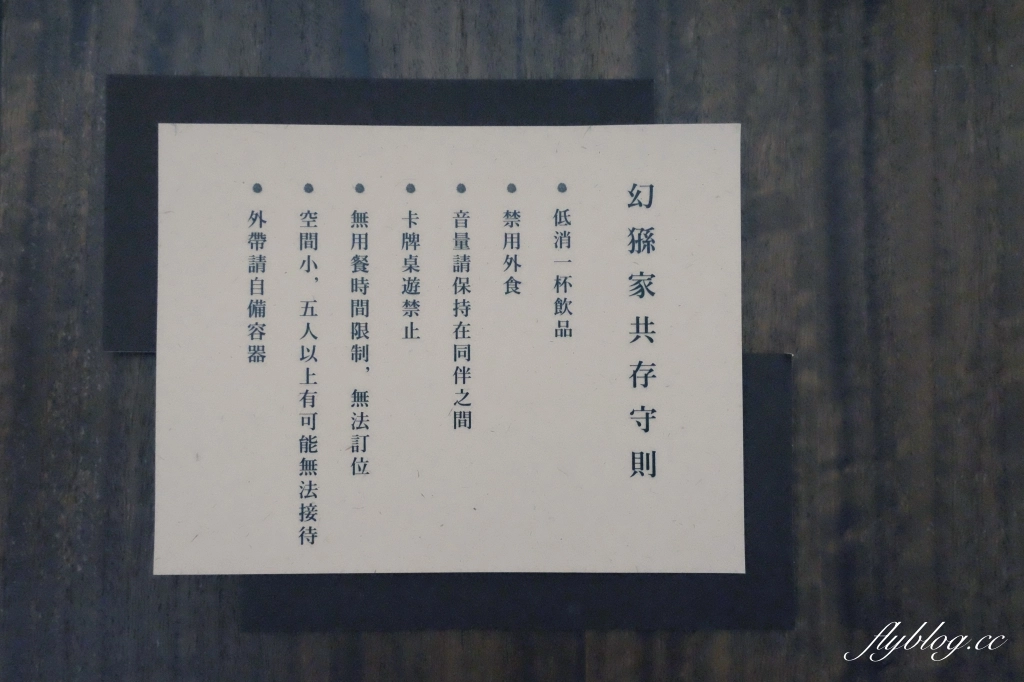 幻猻家共存守則
● 低消一杯飲品
● 禁用外食
● 音量請保持在同伴之間
● 卡牌桌遊禁止
● 無用餐時間限制，無法訂位
● 空間小，五人以上有可能無法接待
● 外帶請自備容器
flyblog.cc